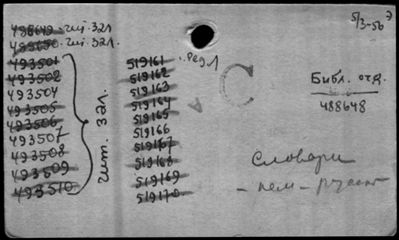 498649 - чит. зал
498650 - чит. зал.
493501
493502
493504
493505
493506
493507
493508
493509
493510
чит. зал.
519161 · Ред Л
519162
519163
519164
519165
519166
519167
519168
519169
519170
С
5/3-56 Э
Библ. отд.
488648
Словари
- нем - русск